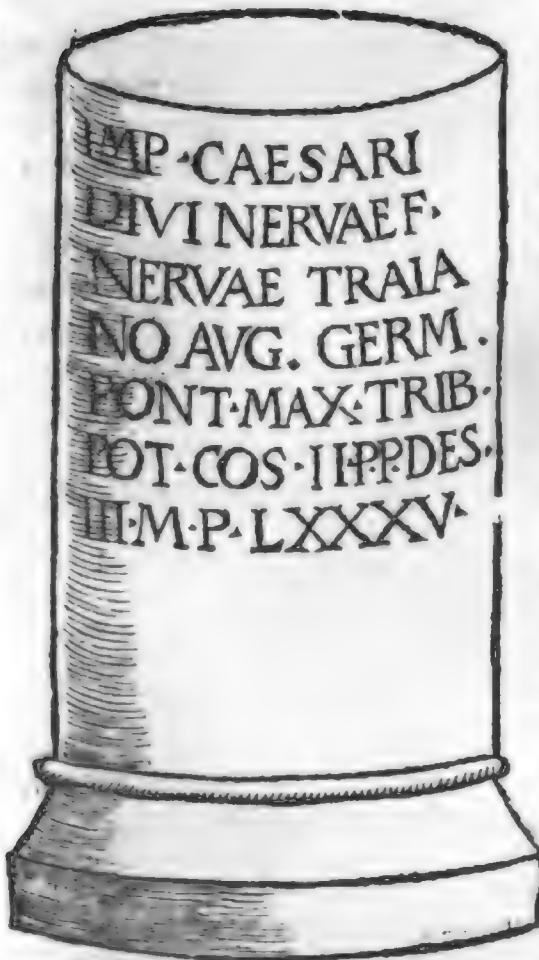 IMP·CAESARI
DIVI NERVAE F·
NERVAE TRAIA
NO AVG. GERM.
PONT·MAX·TRIB·
POT·COS·II·P.P.DES.
III·M·P·LXXXV·